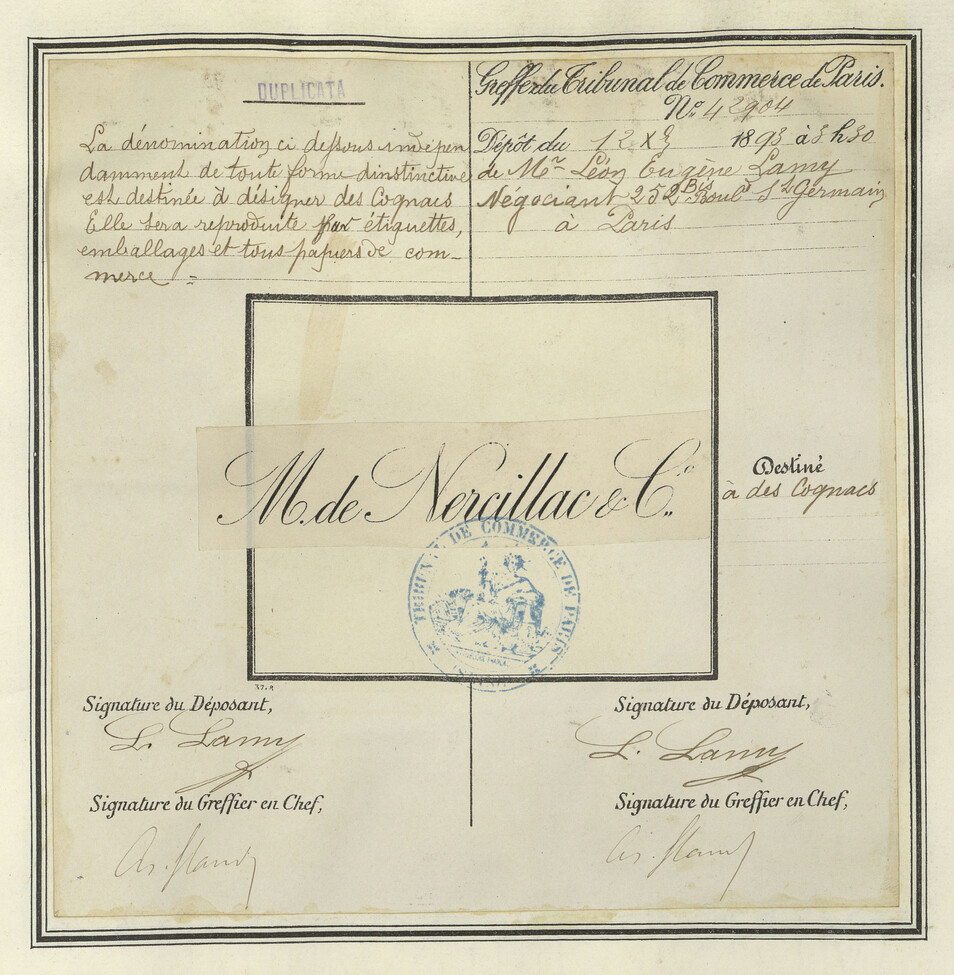 DUPLICATA
La dénomination ci dessous indépen
damment de toute forme dinstinctive
est destinée à désigner des Cognacs
Elle sera reproduite par étiquettes,
emballages et tous papiers de com-
merce =
Greffe du Tribunal de Commerce de Paris.
N° 42904
Dépôt du 12 X 1893 à 3 h 30
de Mr Léon Eugène Lamy
Négociant 252 Bis Bould St Germain
à Paris
M. de Nercillac & Co
Destiné
à des Cognacs
TRIBUNAL DE COMMERCE DE PARIS
Signature du Déposant,
L. Lamy
Signature du Greffier en Chef,
Signature du Déposant,
L. Lamy
Signature du Greffier en Chef,